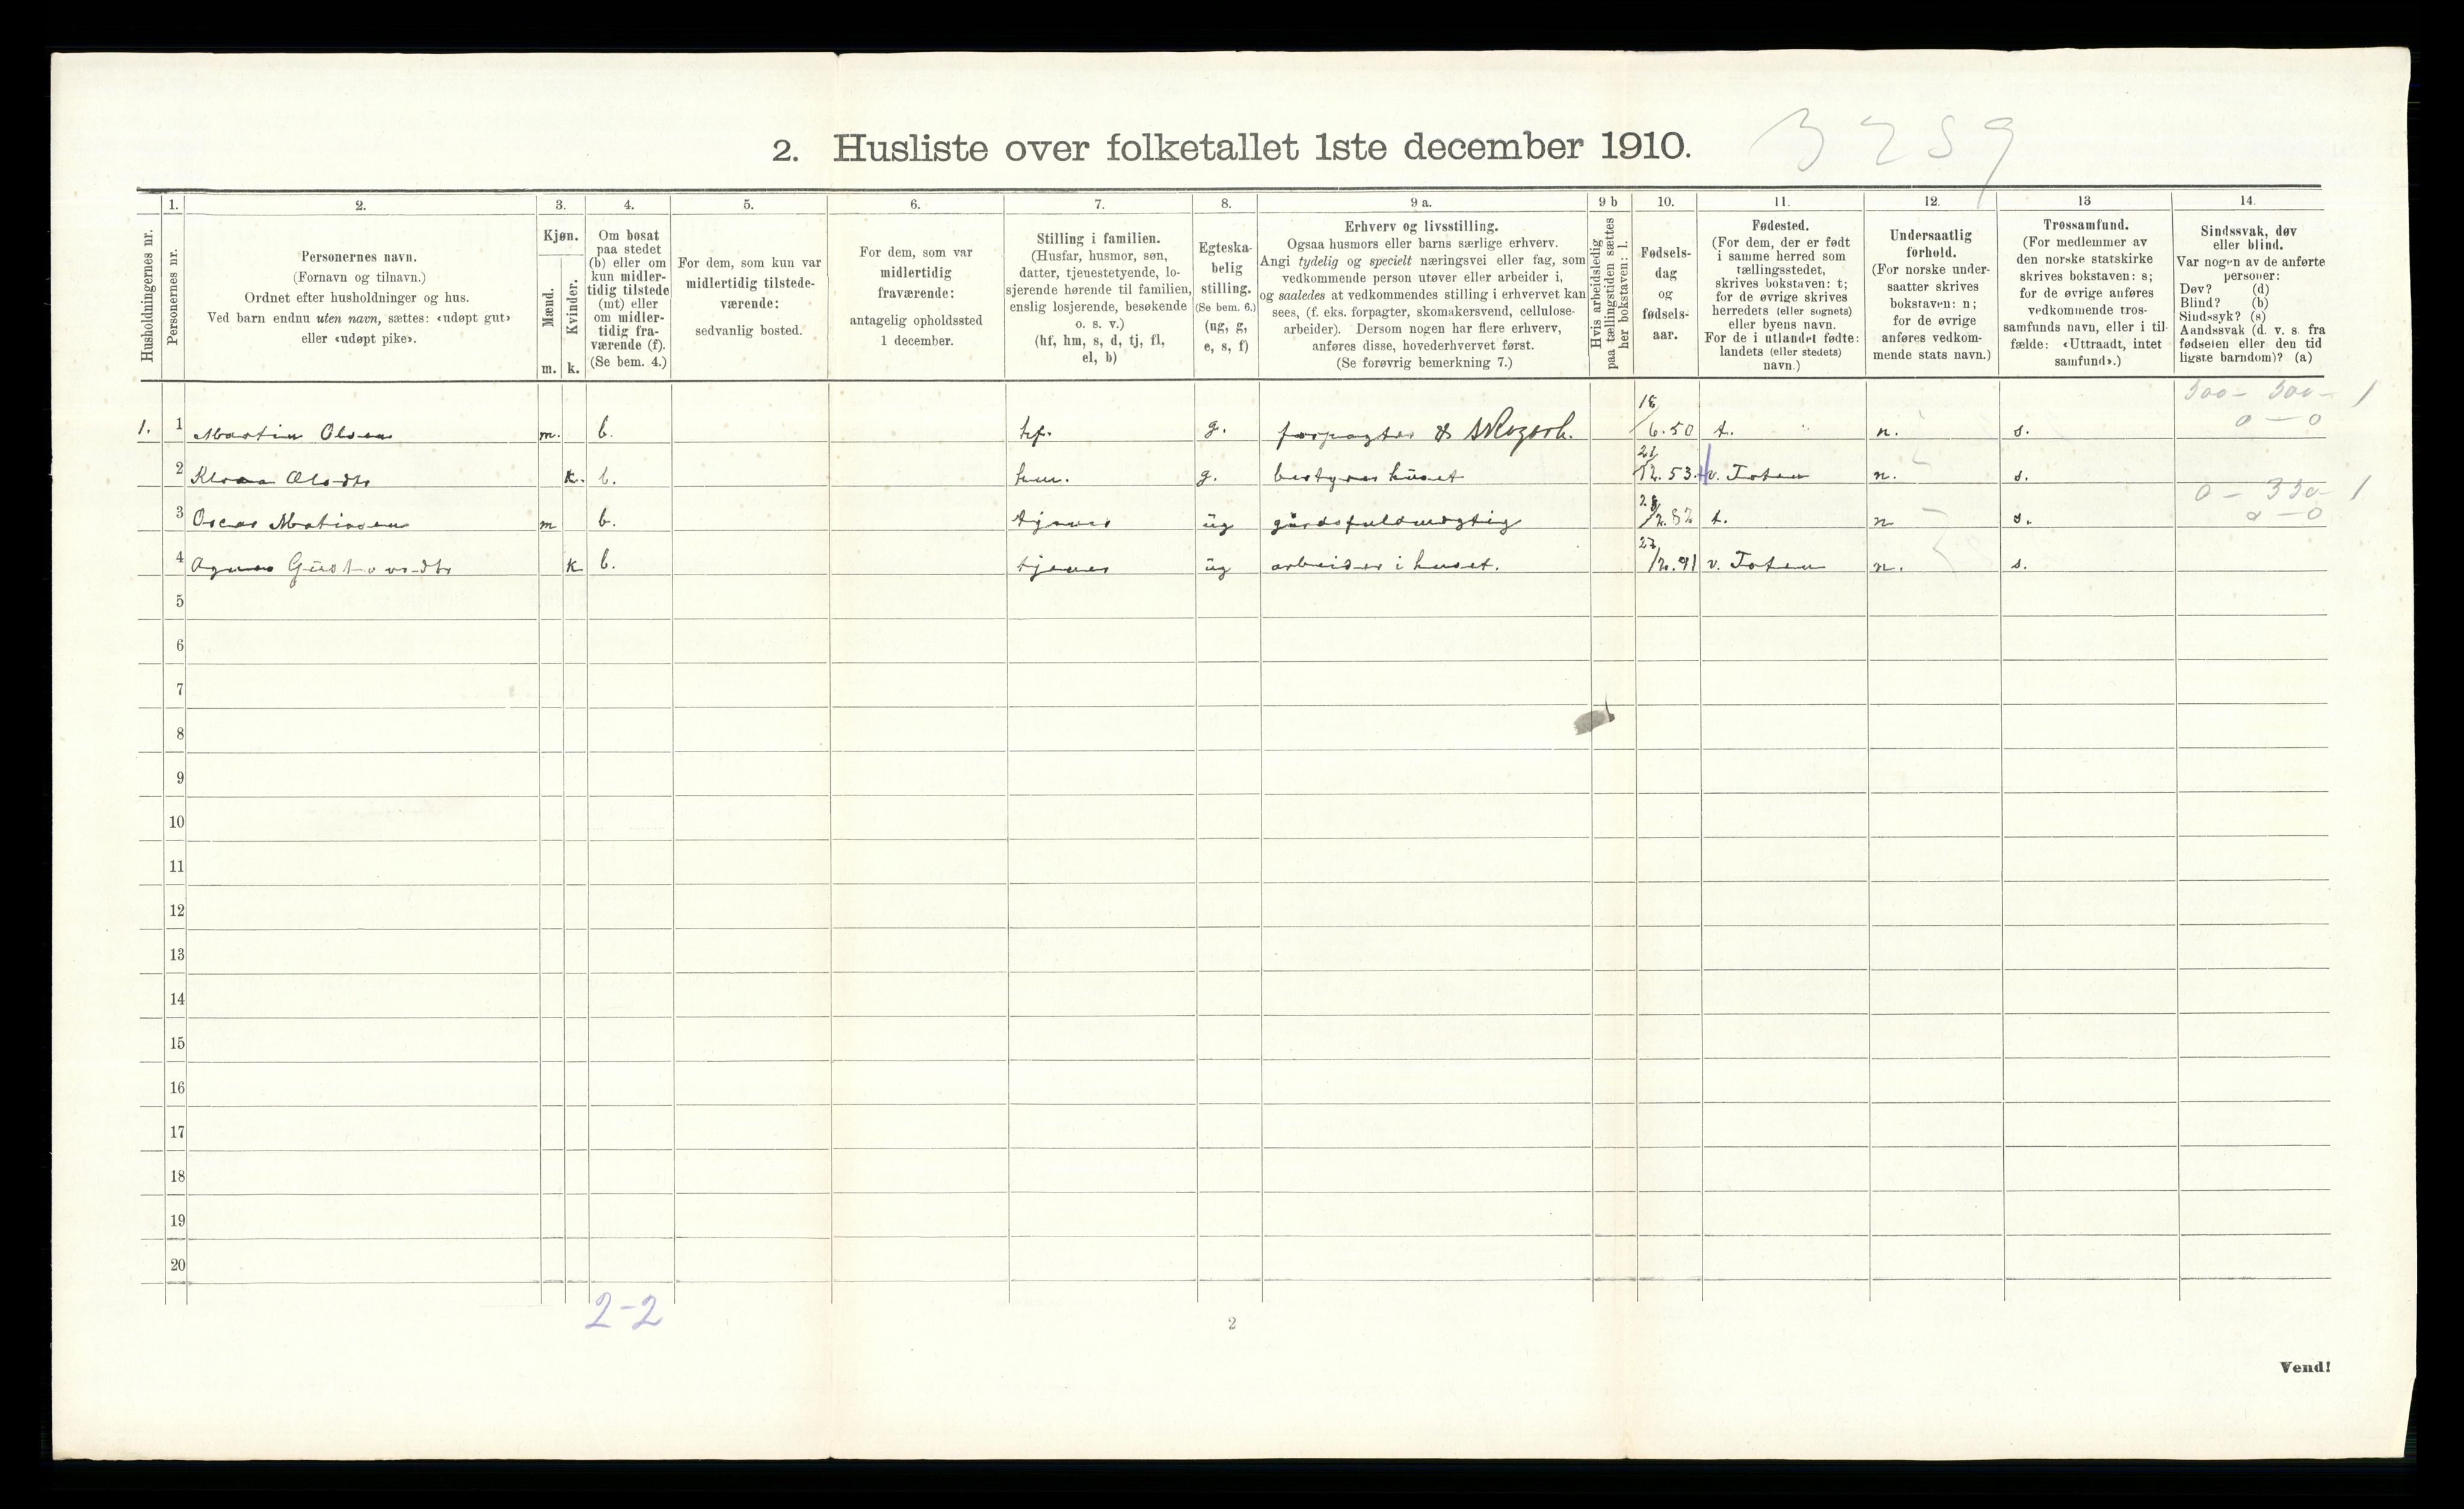 2. Husliste over folketallet 1ste december 1910.
3259
Husholdningernes nr.
1.
Personernes nr.
2.
Personernes navn.
(Fornavn og tilnavn.)
Ordnet efter husholdninger og hus.
Ved barn endnu uten navn, sættes: «udøpt gut»
eller «udøpt pike».
3.
Kjøn.
Mænd.
Kvinder.
m. k.
4.
Om bosat
paa stedet
(b) eller om
kun midler-
tidig tilstede
(mt) eller
om midler-
tidig fra-
værende (f).
(Se bem. 4.)
5.
For dem, som kun var
midlertidig tilstede-
værende:
sedvanlig bosted.
6.
For dem, som var
midlertidig
fraværende:
antagelig opholdssted
1 december.
7.
Stilling i familien.
(Husfar, husmor, søn,
datter, tjenestetyende, lo-
sjerende hørende til familien,
enslig losjerende, besøkende
o. s. v.)
(hf, hm, s, d, tj, fl,
el, b)
8.
Egteska-
belig
stilling.
(Se bem. 6.)
(ug, g,
e, s, f)
9 a.
Erhverv og livsstilling.
Ogsaa husmors eller barns særlige erhverv.
Angi tydelig og specielt næringsvei eller fag, som
vedkommende person utøver eller arbeider i,
og saaledes at vedkommendes stilling i erhvervet kan
sees, (f. eks. forpagter, skomakersvend, cellulose-
arbeider). Dersom nogen har flere erhverv,
anføres disse, hovederhvervet først.
(Se forøvrig bemerkning 7.)
9 b
Hvis arbeidsledig
paa tællingstiden sættes
her bokstaven: l.
10.
Fødsels-
dag
og
fødsels-
aar.
11.
Fødested.
(For dem, der er født
i samme herred som
tællingsstedet,
skrives bokstaven: t;
for de øvrige skrives
herredets (eller sognets)
eller byens navn.
For de i utlandet fødte:
landets (eller stedets)
navn.)
12.
Undersaatlig
forhold.
(For norske under-
saatter skrives
bokstaven: n;
for de øvrige
anføres vedkom-
mende stats navn.)
13
Trossamfund.
(For medlemmer av
den norske statskirke
skrives bokstaven: s;
for de øvrige anføres
vedkommende tros-
samfunds navn, eller i til-
fælde: «Uttraadt, intet
samfund».)
14.
Sindssvak, døv
eller blind.
Var nogen av de anførte
personer:
Døv? (d)
Blind? (b)
Sindssyk? (s)
Aandssvak (d. v. s. fra
fødselen eller den tid
ligste barndom)? (a)
300 - 300 - 1
0 - 0
1. 1 Martin Olsen m. b. hf. g. forpagter & 18/6.50 t. n. s.
2 Olsdtr k. b. hm. g. bestyrer huset 21/12.53. v. Toten n. s.
0 - 350 - 1
0 - 0
3 Oscar Matiasen m b. tjener ug gårdsfuldmægtig 28/2.82 t. n s.
4 Agnes Gustavsdtr k b. tjener ug arbeider i huset. 23/12.91 v. Toten n. s.
5
6
7
8
9
10
11
12
13
14
15
16
17
18
19
20
2-2
2
Vend!